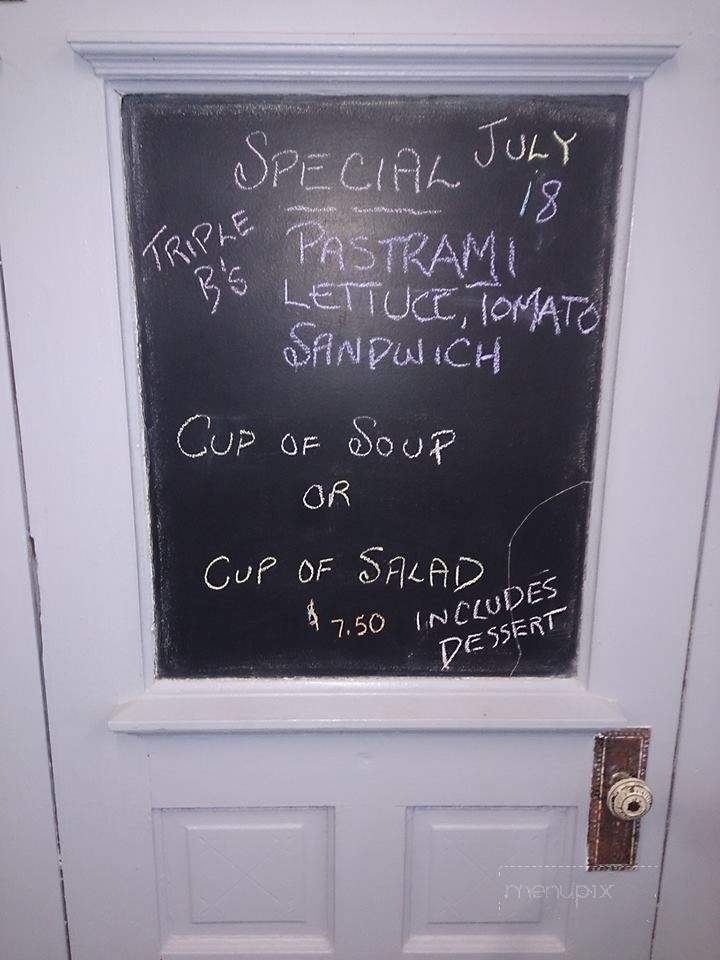 SPECIAL JULY 18
TRIPLE B'S
PASTRAMI
LETTUCE, TOMATO
SANDWICH
CUP OF SOUP
OR
CUP OF SALAD
$7.50 INCLUDES DESSERT
menupix